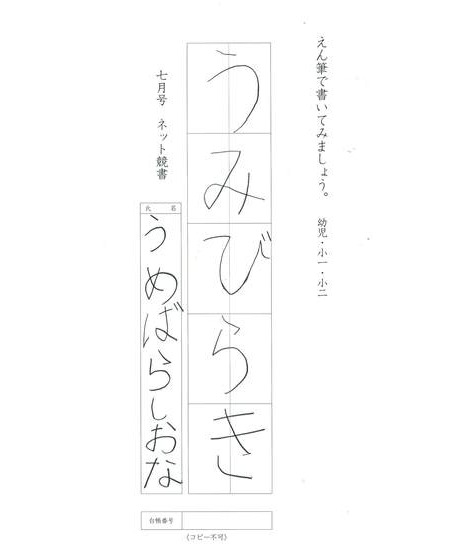 えん筆で書いてみましょう。 幼児・小一・小二
うみびらき
七月号 ネット競書
氏 名
うめばらしおな
台帳番号
(コピー不可)